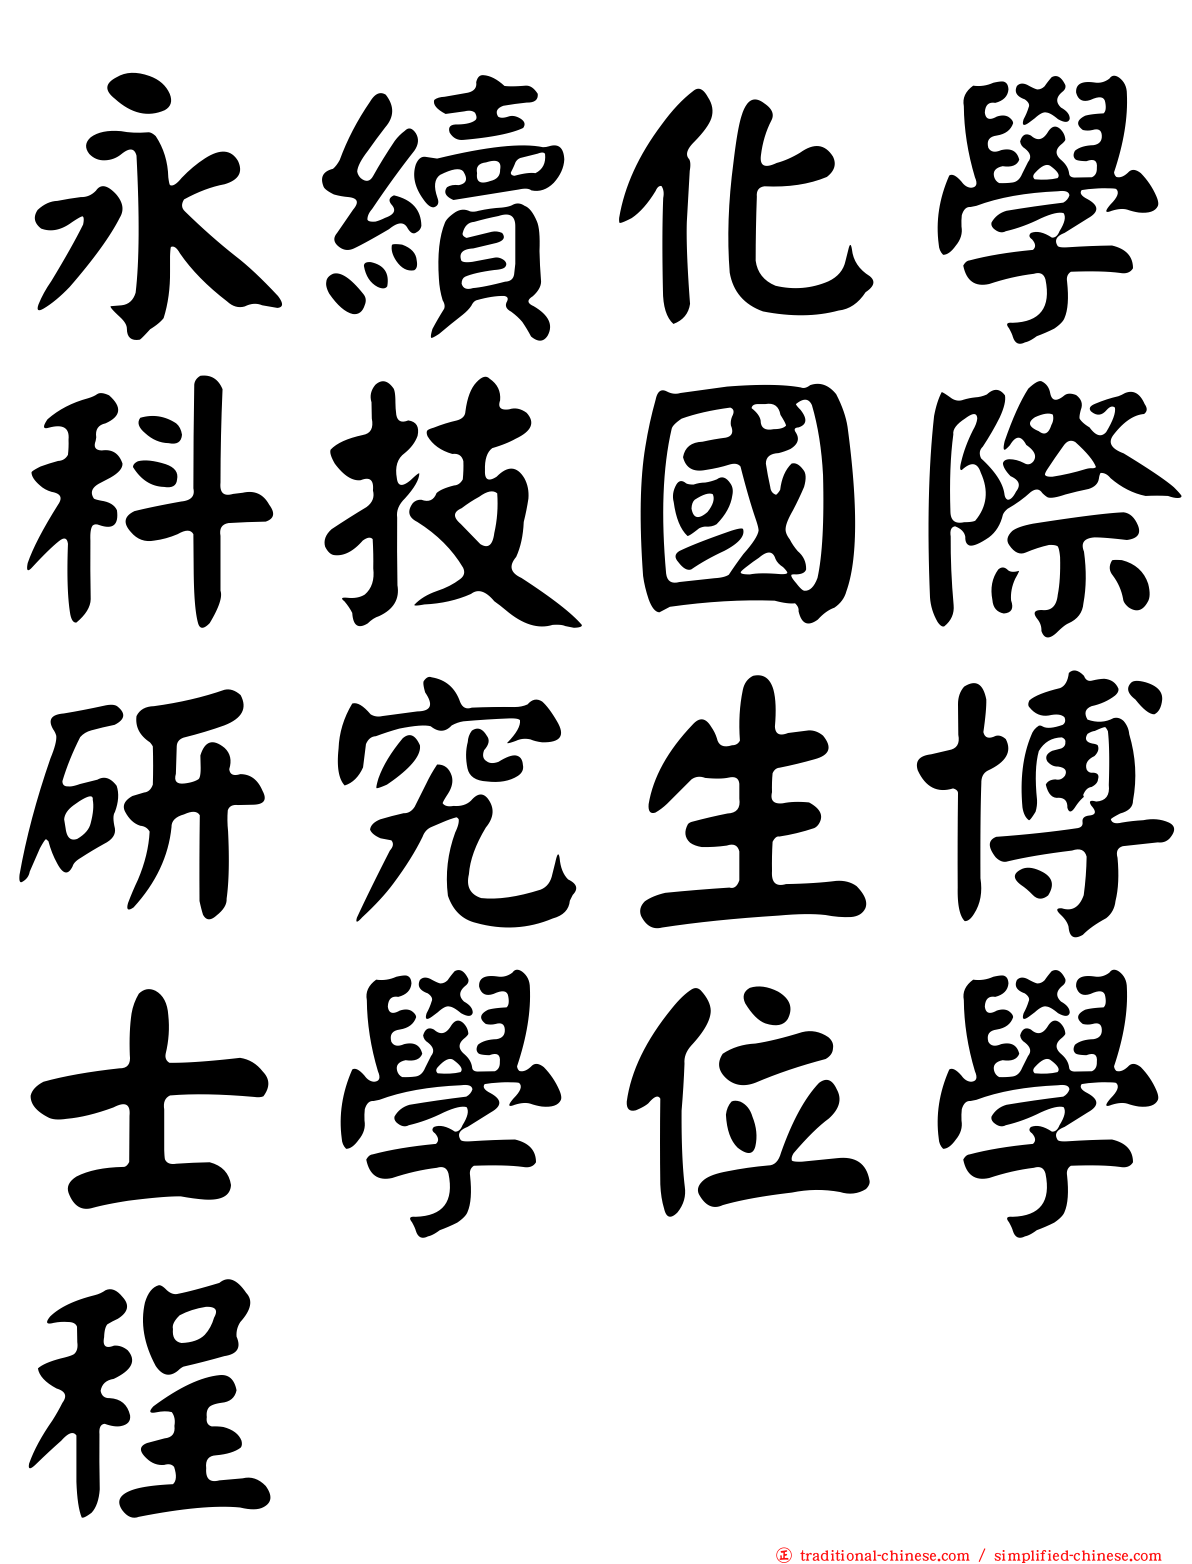 永續化學
科技國際
研究生博
士學位學
程
㊣ traditional-chinese.com / simplified-chinese.com